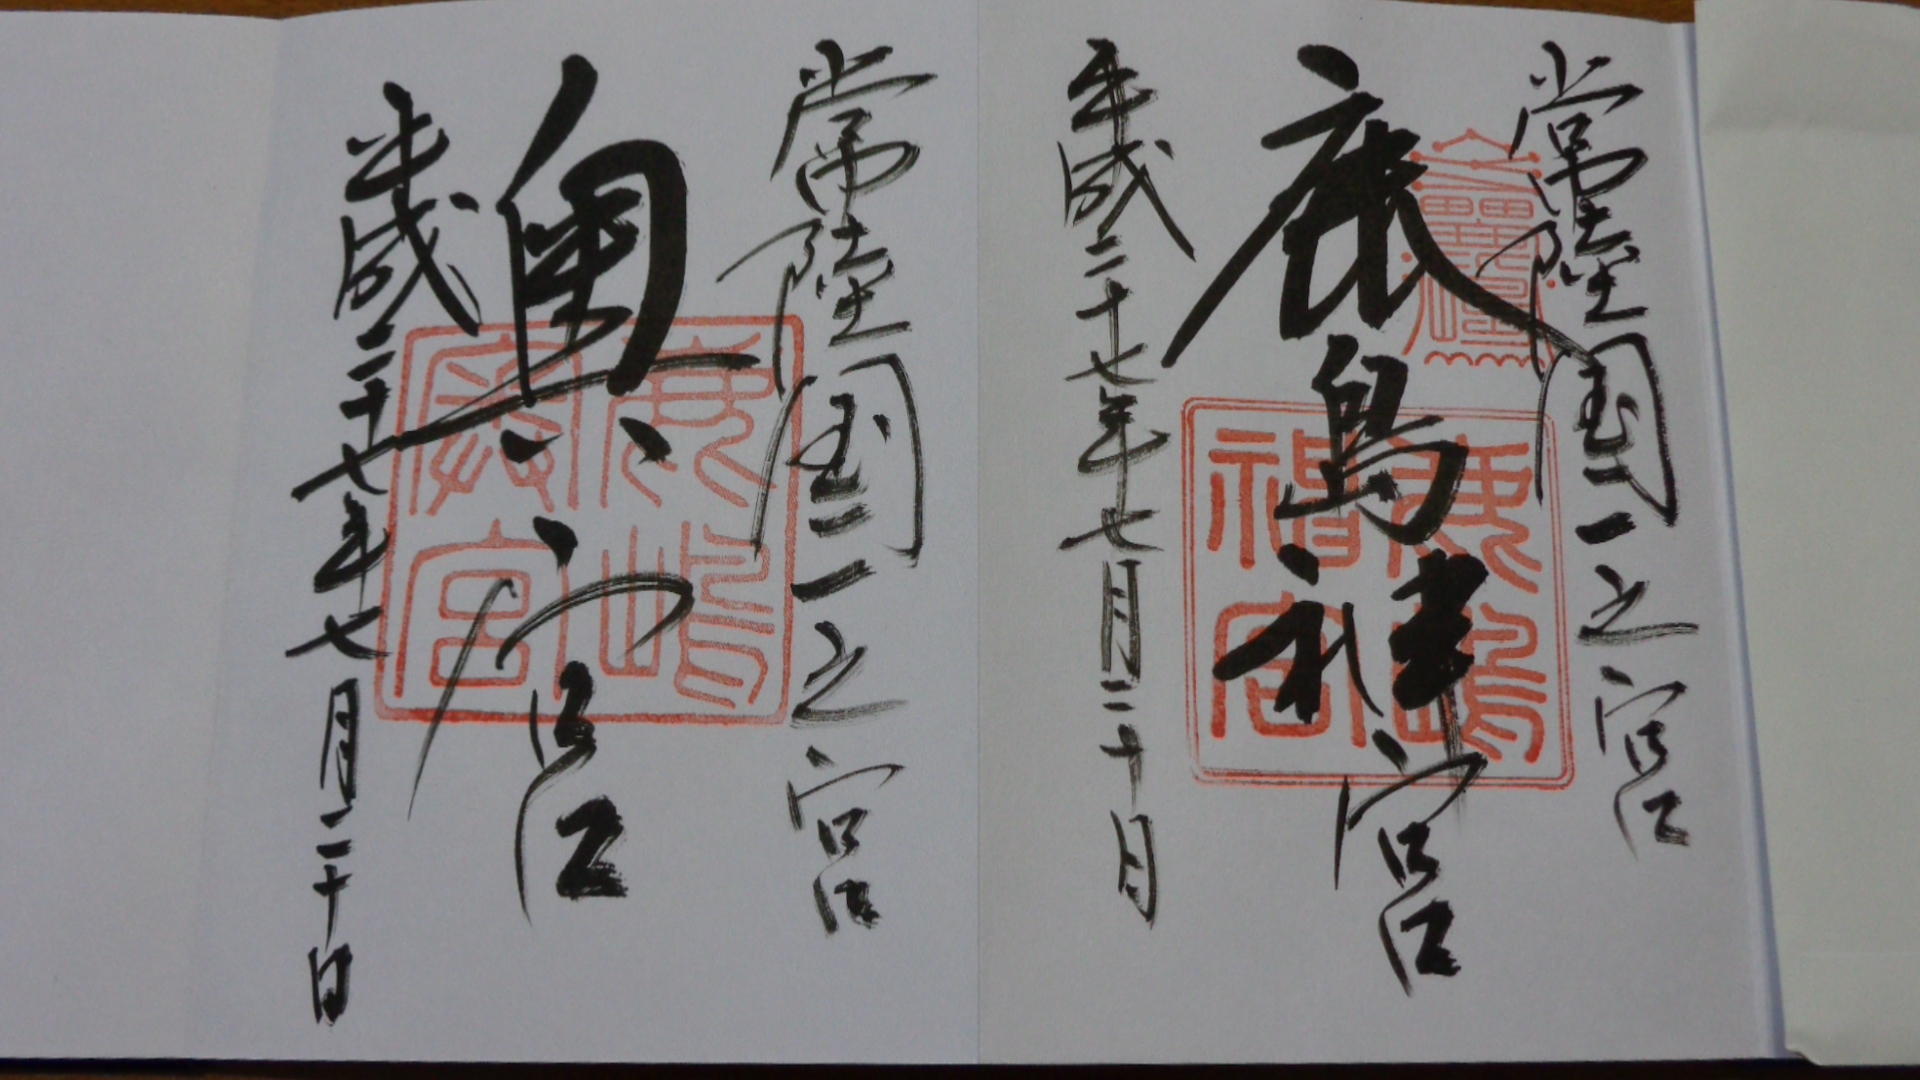 常陸国一之宮
鹿島神宮
平成二十七年七月二十日
鹿嶋
神宮
常陸国一之宮
奥宮
平成二十七年七月二十日
鹿嶋
奥宮